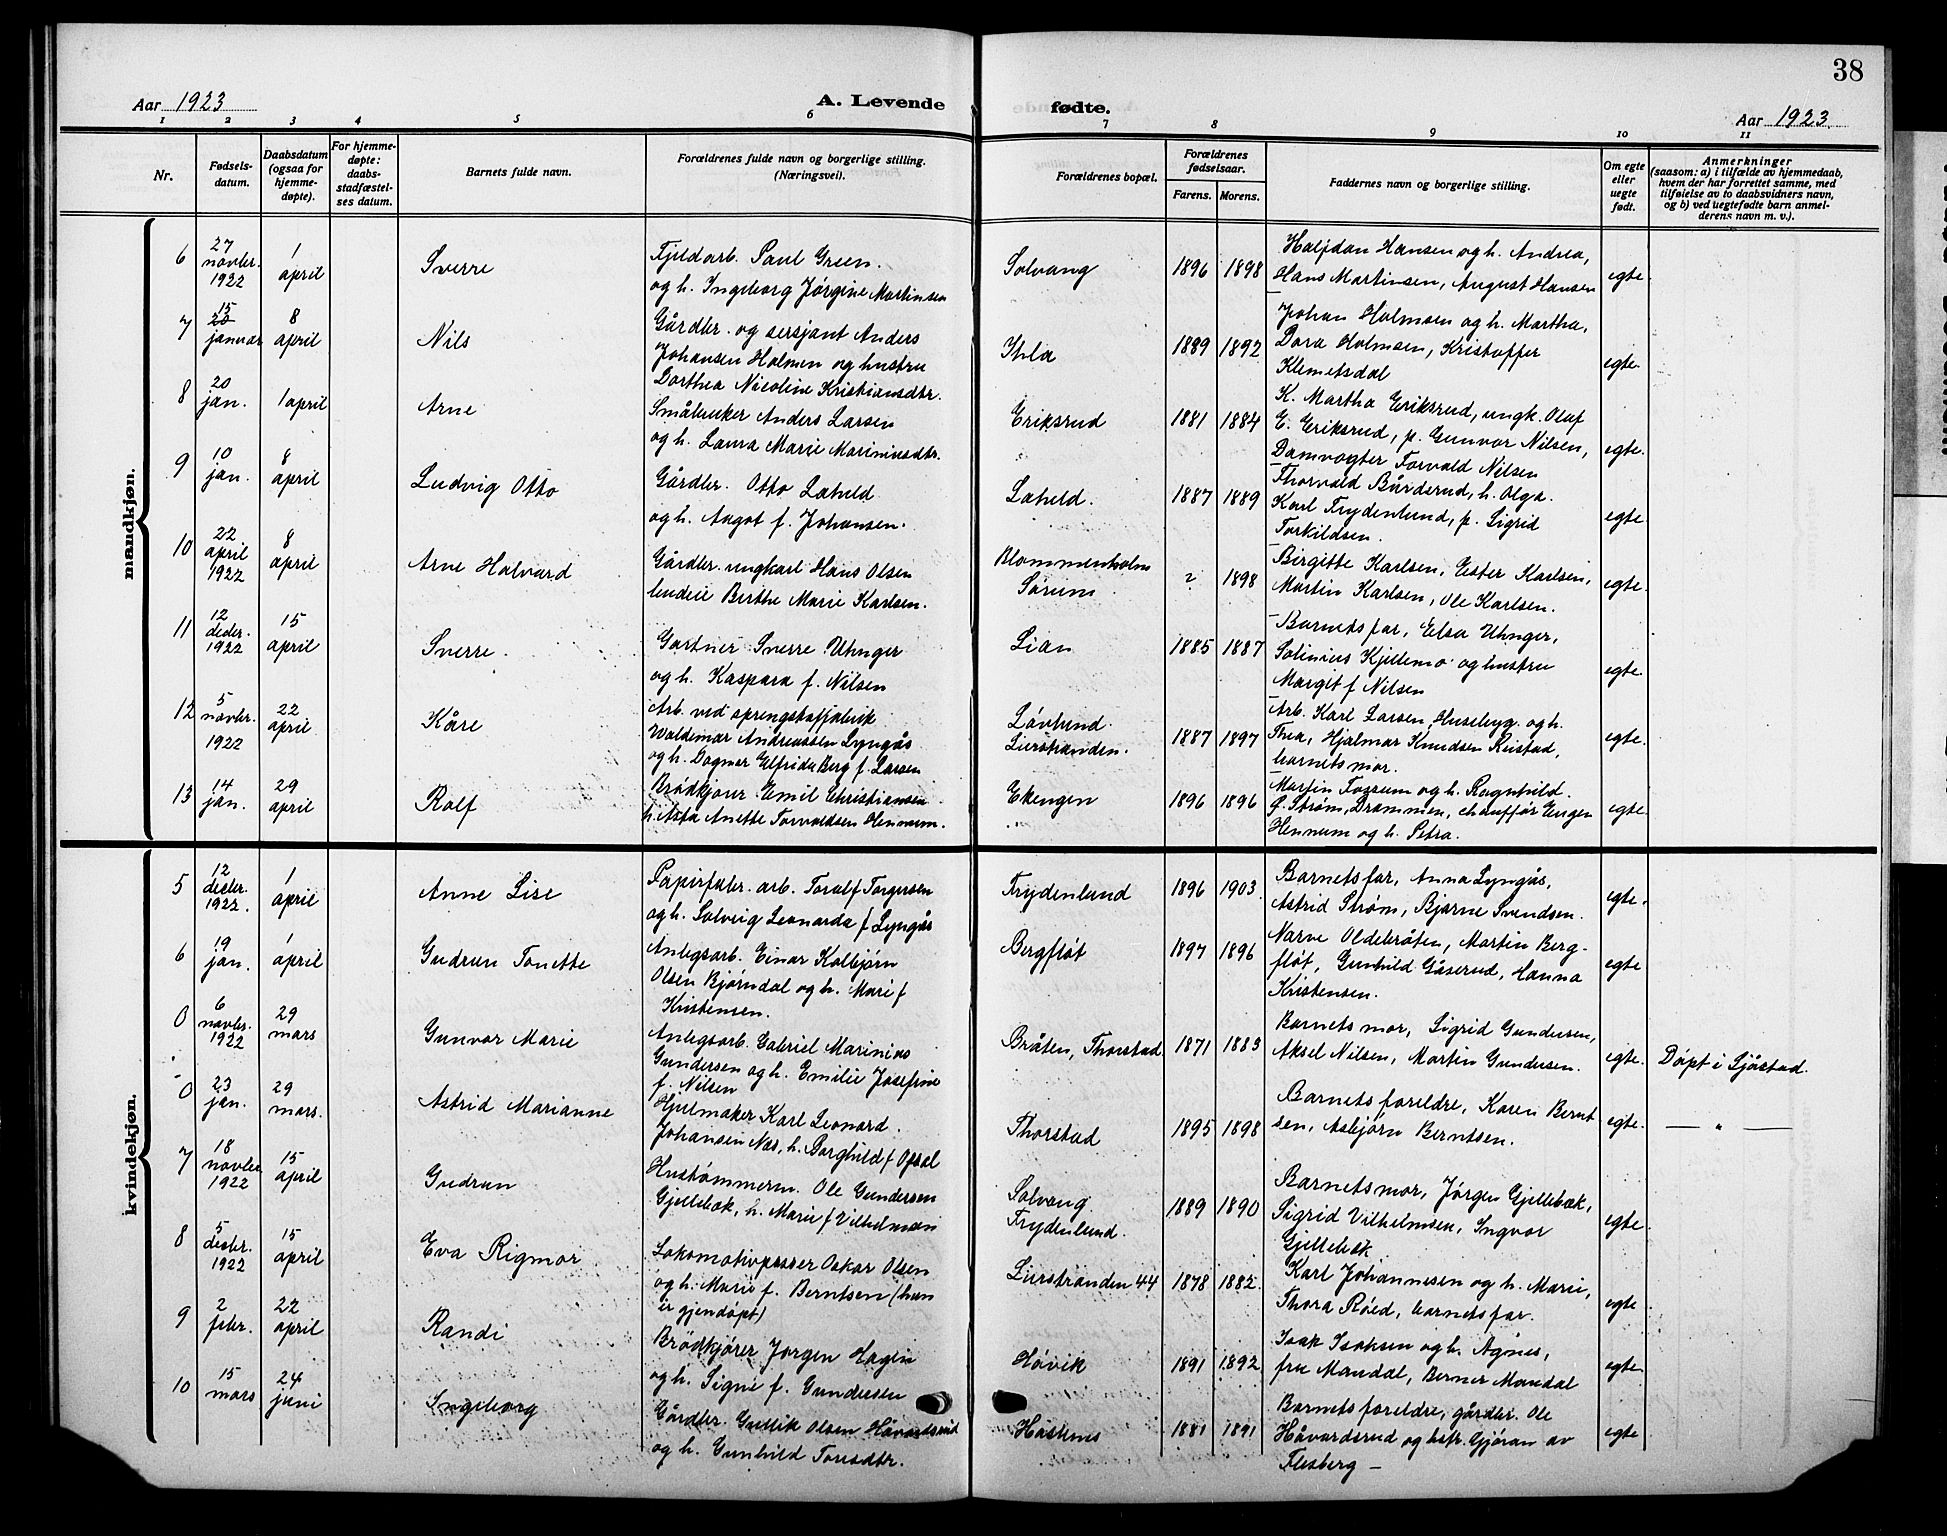 38
Aar 1923
A. Levende fødte.
Aar 1923.
1 2 3 4 5 6 7 8 9 10 11
Nr.
Fødsels-
datum.
Daabsdatum
(ogsaa for
hjemme-
døpte).
For hjemme-
døpte:
daabs-
stadfæstel-
ses datum.
Barnets fulde navn.
Forældrenes fulde navn og borgerlige stilling.
(Næringsvei).
Forældrenes bopæl.
Forældrenes
fødselsaar.
Farens. Morens.
Faddernes navn og borgerlige stilling.
Om egte
eller
uegte
født.
Anmerkninger
(saasom: a) i tilfælde av hjemmedaab,
hvem der har forrettet samme, med
tilføielse av to daabsvidners navn,
og b) ved uegtefødte barn anmel-
derens navn m. v.).
mandkjøn.
6
27
novbr.
1922
1
april
Sverre
Fjeldarb. Paul Green.
og h. Ingeborg Jørgine Martinsen
Solvang
1896 1898
Halfdan Hansen og h. Andrea,
Hans Martinsen, August Hansen
egte.
7
15
20
januar
8
april
Nils
Gårdbr. og sersjant Anders
Johansen Holmen og hustru
Dorthea Nicoline Kristiansdtr.
Ihla
1889 1892
Johan Holmsen og h. Martha,
Dora Holmsen, Kristoffer
Klemetsdal
egte.
8
20
jan.
1 april
Arne
Småbruker Anders Larsen
og h. Laura Marie Mariniusdtr.
Eriksrud
1881 1884
K. Martha Eriksrud, ungk. Olaf
E. Eriksrud, p. Gunvor Nilsen,
Damvogter Torvald Nilsen
egte.
9
10
jan.
8
april
Ludvig Otto
Gårdbr. Otto Laheld
og h. Aagot f. Johansen.
Laheld.
1887 1889
Thorvald Bårderud, h. Olga.
Karl Frydenlund, p. Sigrid
Torkildsen.
egte.
10
22
april
1922
8
april
Arne Halvard
Gårdbr. ungkarl Hans Olsen
Berthe Marie Karlsen.
Blommenholm
Sørum
? 1898
Birgitte Karlsen, Ester Karlsen,
Martin Karlsen, Ole Karlsen.
egte.
11
12
decbr.
1922
15
april
Sverre.
Gartner Sverre Uhnger
og h. Kaspara f. Nilsen
Lian
1885 1887
Barnets far, Elsa Uhnger,
Solinius Kjellemo og hustru
Margit f Nilsen
egte.
12
5
novbr.
1922
22
april
Kåre
Arb. ved sprengstoffabrik
Waldemar Andreassen Lyngås
og h. Dagmar Elfrida Berg f. Larsen
Løvlund
Lierstranden.
1887 1897
Arb. Karl Larsen, Huseby og h.
Thea, Hjalmar Knudsen Reistad,
barnets mor.
egte.
13
14
jan.
29
april
Rolf
Brødkjører Emil Christiansen
h. Asta Anette Torvaldsen Hennum.
Ekengen
1896 1896
Martin Fossum og h. Ragnhild.
G. Strøm, Drammen, chauffør Eugen
Hennum og h. Petra.
egte.
kvindekjøn.
5
12
decbr.
1922.
1
april
Anne Lise
Papirfabr. arb. Toralf Torgersen
og h. Solveig Leonarda f Lyngås
Frydenlund
1896 1903.
Barnets far, Anna Lyngås,
Astrid Strøm, Bjarne Svendsen.
egte.
6
19
jan.
1
april
Gudrun Tonette
Anlegsarb. Einar Kolbjørn
Olsen Bjørndal og h. Mari f
Kristensen.
Bergfløt
1897 1896
Narve Oldebråten, Martin Berg-
fløt, Gunhild Gåserud, Hanna
Kristensen.
egte
0
6
novbr.
1922
29
mars
Gunvor Marie
Anlegsarb. Gabriel Marinius
Gundersen og h. Emilie Josefine
f. Nilsen
Bråten, Thorstad
1871 1883
Barnets mor, Sigrid Gundersen,
Aksel Nilsen, Martin Gundersen.
egte.
Døpt i Sjåstad.
0
23
jan.
29
mars.
Astrid Marianne
Hjulmaker Karl Leonard.
Johansen Næs, h. Borghild f Opsal
Thorstad
1895 1898
Barnets foreldre, Karen Bernt
sen, Asbjørn Berntsen.
egte.
— " —
7
18
novbr.
1922
15
april
Gudrun
Hustømmerm. Ole Gundersen
Gjellebæk, h. Marie f Vilhelmsen
Solvang
Frydenlund.
1889 1890
Barnets mor, Jørgen Gjellebæk,
Sigrid Vilhelmsen, Ingvor
Gjellebæk
egte
8
5
decbr.
1922
15
april
Eva Rigmor
Lokomotivpusser Oskar Olsen
og h. Marie f. Berntsen (hun
er gjendøpt)
Lierstranden 44
1878 1882.
Karl Johannesen og h. Marie,
Thora Røed, barnets far.
egte
9
2
febr.
22
april
Randi
Brødkjører Jørgen Hagen
og h. Signe f. Gundersen
Høvik
1891 1892
Isak Isaksen og h. Agnes,
fru Mandal, Berner Mandal
egte
10
15
mars
24
juni
Ingeborg
Gårdbr. Gullik Olsen Håvardsrud
og h. Gunhild Toresdtr.
Høstenes
1881 1891
Barnets foreldre, gårdbr. Ole
Håvardsrud og hstr. Gjøran av
Flesberg —
egte